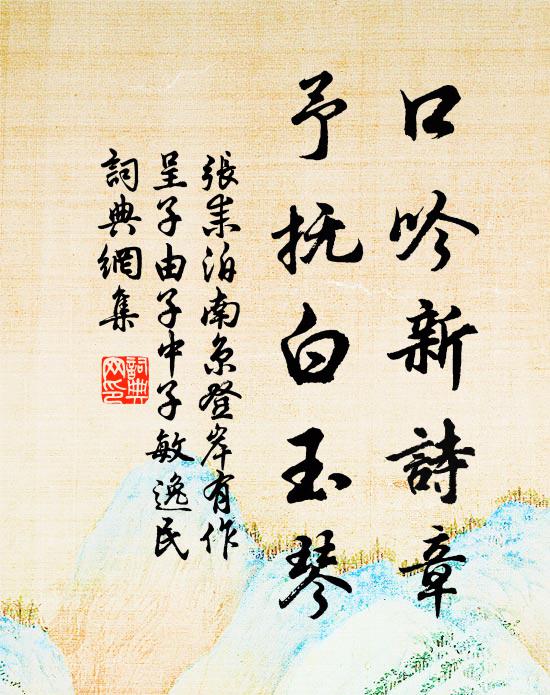 口吟新詩章
予抚白玉琴
張耒泊南京登岸有作
呈子由子中子敏逸民
詞典網集
詞典
网印